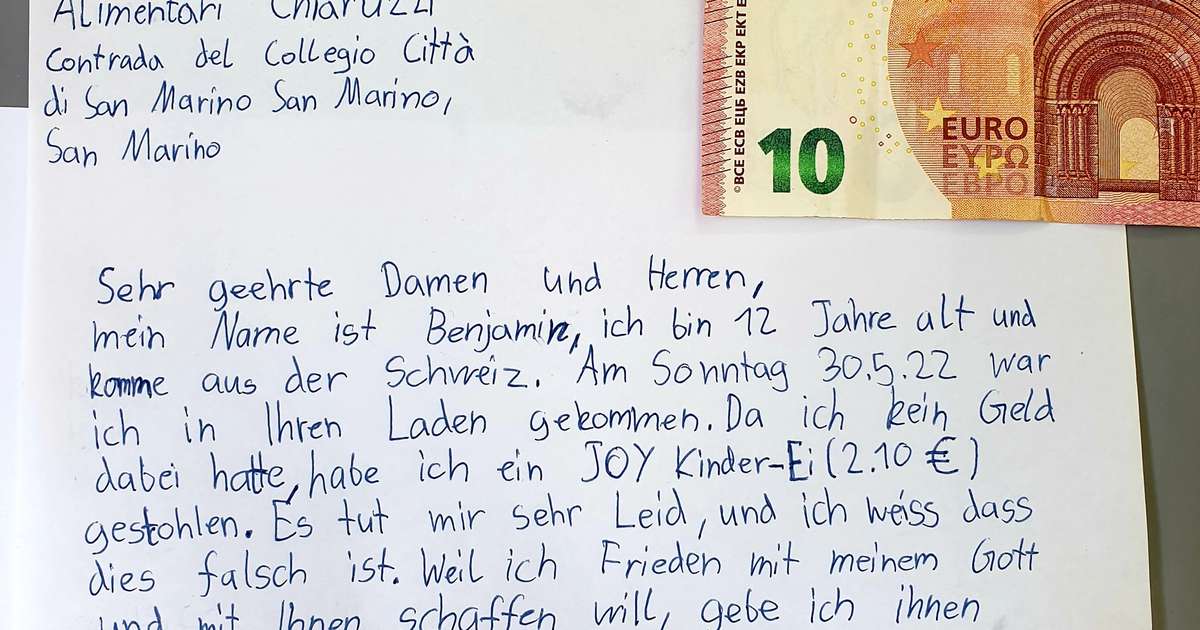 Alimentari Chiaruzzi
Contrada del Collegio Città
di San Marino San Marino,
San Marino
©BCE ECB ЕЦБ EZB EKP EKT E
10
EURO
ΕΥΡΩ
ЕВРО
Sehr geehrte Damen und Herren,
mein Name ist Benjamin, ich bin 12 Jahre alt und
komme aus der Schweiz. Am Sonntag 30.5.22 war
ich in Ihren Laden gekommen. Da ich kein Geld
dabei hatte, habe ich ein JOY Kinder-Ei (2.10 €)
gestohlen. Es tut mir sehr Leid, und ich weiss dass
dies falsch ist. Weil ich Frieden mit meinem Gott
und mit Ihnen schaffen will, gebe ich ihnen